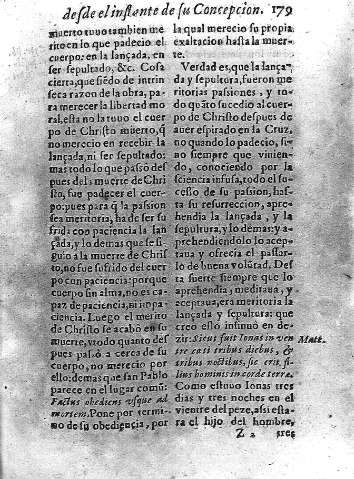 desde el instante de su Concepcion. 179
muerto tuuo tambien me
rito en lo que padecio el
cuerpo: en la lançada, en
ser sepultado, &c. Cosa
cierta, que siẽdo de intrin
seca razon de la obra, pa-
ra merecer la libertad mo
ral, esta no la tuuo el cuer
po de Christo muerto, q̃
no merecio en recebir la
lançada, ni ser sepultado:
mas todo lo que passò des
pues de la muerte de Chri
sto, fue padecer el cuer-
po: pues para q̃ la passion
sea meritoria, ha de ser su
frida con paciencia la lan
çada, y lo demas que se si-
guio a la muerte de Chris
to, no fue sufrido del cuer
po con paciencia: porque
cuerpo sin alma, no es ca-
paz de paciencia, ni impa-
ciencia. Luego el merito
de Christo se acabò en su
muerte, y todo quanto des
pues passò a cerca de su
cuerpo, no merecio por
ello: demas que san Pablo
parece en el lugar comũ:
Factus obediens vsque ad
mortem. Pone por termi-
no de su obediencia, por
la qual merecio su propia
exaltacion hasta la muer-
te.
Verdad es, que la lança-
da, y sepultura, fueron me
ritorias passiones, y to-
do quãto sucedio al cuer-
po de Christo despues de
auer espirado en la Cruz,
no quando lo padecio, si-
no siempre que viuien-
do, conociendo por la
sciencia infusa, todo el su-
cesso de su passion, has-
ta su resurreccion, apre-
hendia la lançada, y la
sepultura, y lo demas: y a-
prehendiendolo lo acep-
taua y ofrecia el passar-
lo de buena volũtad. Des
ta suerte siempre que lo
aprehendia, meditaua, y
aceptaua, era meritoria la
lançada y sepultura: que
creo ello insinuò en de-
zir. Sicut fuit Ionas in ven Matt.
tre ceti tribus diebus, &
tribus noctibus, sic erit fi-
lius hominis in corde terræ.
Como estuuo Ionas tres
dias y tres noches en el
vientre del peze, assi esta-
ra el hijo del hombre,
Z 2 tres